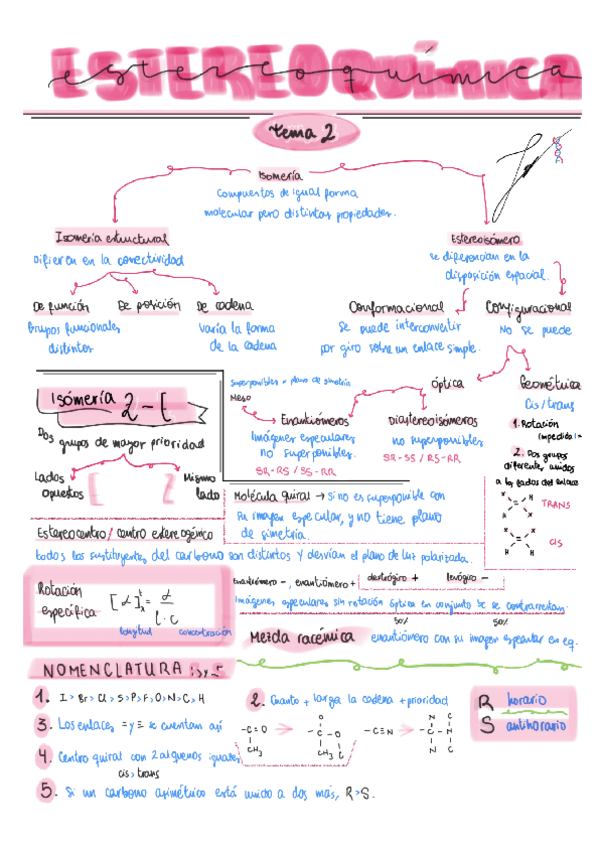 ESTEREOQUÍMICA
estereoquímica
tema 2
Isomería
Compuestos de igual forma
molecular pero distintas propiedades.
Isomería estructural
Difieren en la conectividad
De función
De posición
De cadena
Grupos funcionales
distintos
Varía la forma
de la cadena
Estereoisómero
se diferencian en la
disposición espacial.
Conformacional
Configuracional
Se puede interconvertir
por giro sobre un enlace simple.
No se puede
óptica
Geométrica
Cis/trans
1. Rotación
impedida
2. Dos grupos
diferentes unidos
a los lados del enlace
TRANS
CIS
superponibles - plano de simetría
Meso
Enantiómeros
Diastereoisómeros
Imágenes especulares
no superponibles.
SR-RS / SS-RR
no superponibles
SR-SS / RS-RR
Isómería Z-E
Dos grupos de mayor prioridad
Lados
opuestos
E
Z
Mismo
lado
Molécula quiral → Si no es superponible con
su imagen especular, y no tiene plano
de simetría.
Estereocentro / centro estereogénico
todos los sustituyentes del carbono son distintos y desvían el plano de luz polarizada.
Rotación
específica
[α] = α
l · c
longitud
concentración
Enantiómero -, enantiómero +
dextrógiro +
levógiro -
Imágenes especulares sin rotación óptica en conjunto se contrarrestan.
50%
50%
Mezcla racémica
enantiómero con su imagen especular en eq.
NOMENCLATURA
1. I > Br > Cl > S > P > F > O > N > C > H
2. Cuanto + larga la cadena + prioridad
3. Los enlaces = y ≡ se cuentan así
-C=O
CH3
O
-C-O
CH3 C
-C≡N
N C
-C-N
N C
4. Centro quiral con 2 alquenos iguales
cis > trans
5. Si un carbono asimétrico está unido a dos más, R > S.
R horario
S antihorario